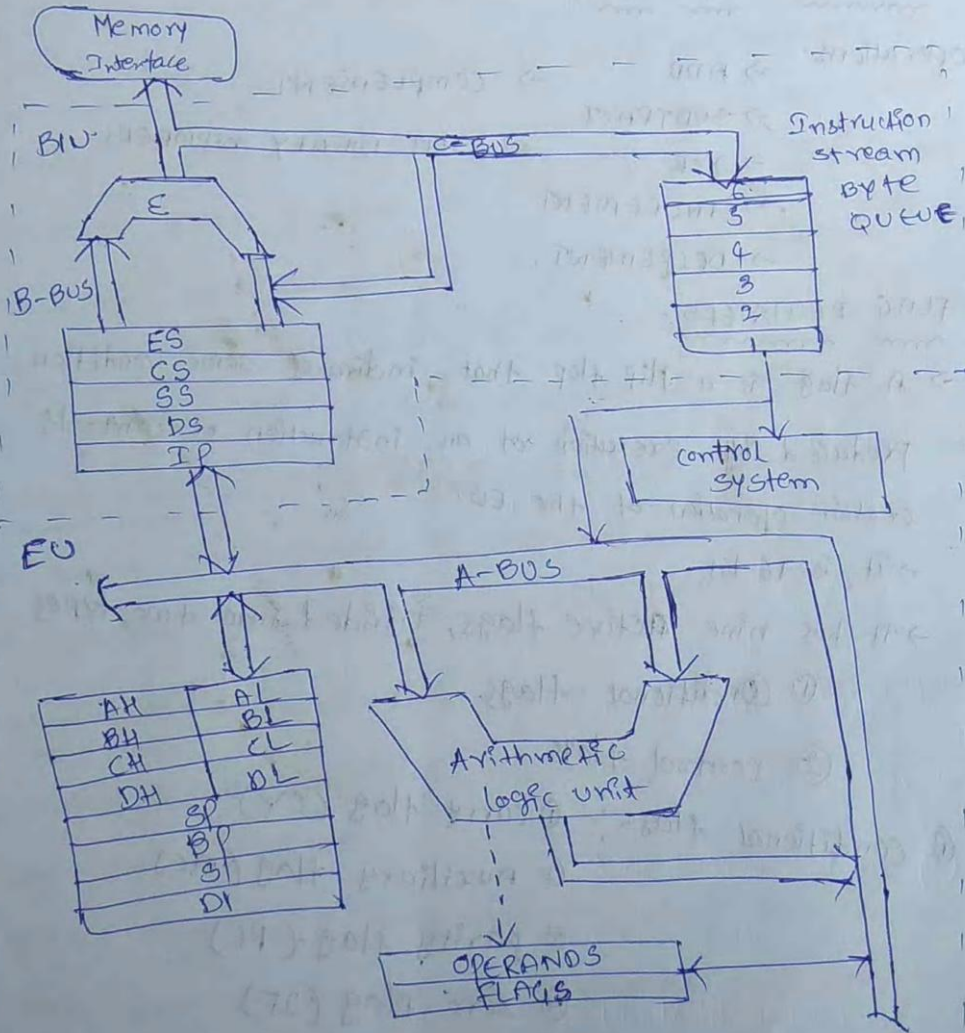 Memory
Interface
BIU
C-BUS
Instruction
stream
BYTE
QUEUE
Σ
6
5
4
3
2
B-BUS
ES
CS
SS
DS
IP
control
system
EU
A-BUS
AH AL
BH BL
CH CL
DH DL
SP
BP
SI
DI
Arithmetic
logic unit
OPERANDS
FLAGS